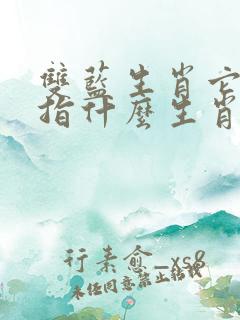 雙藍生肖它
指什麼生肖
行素愈_xs8
未经同意禁止转载